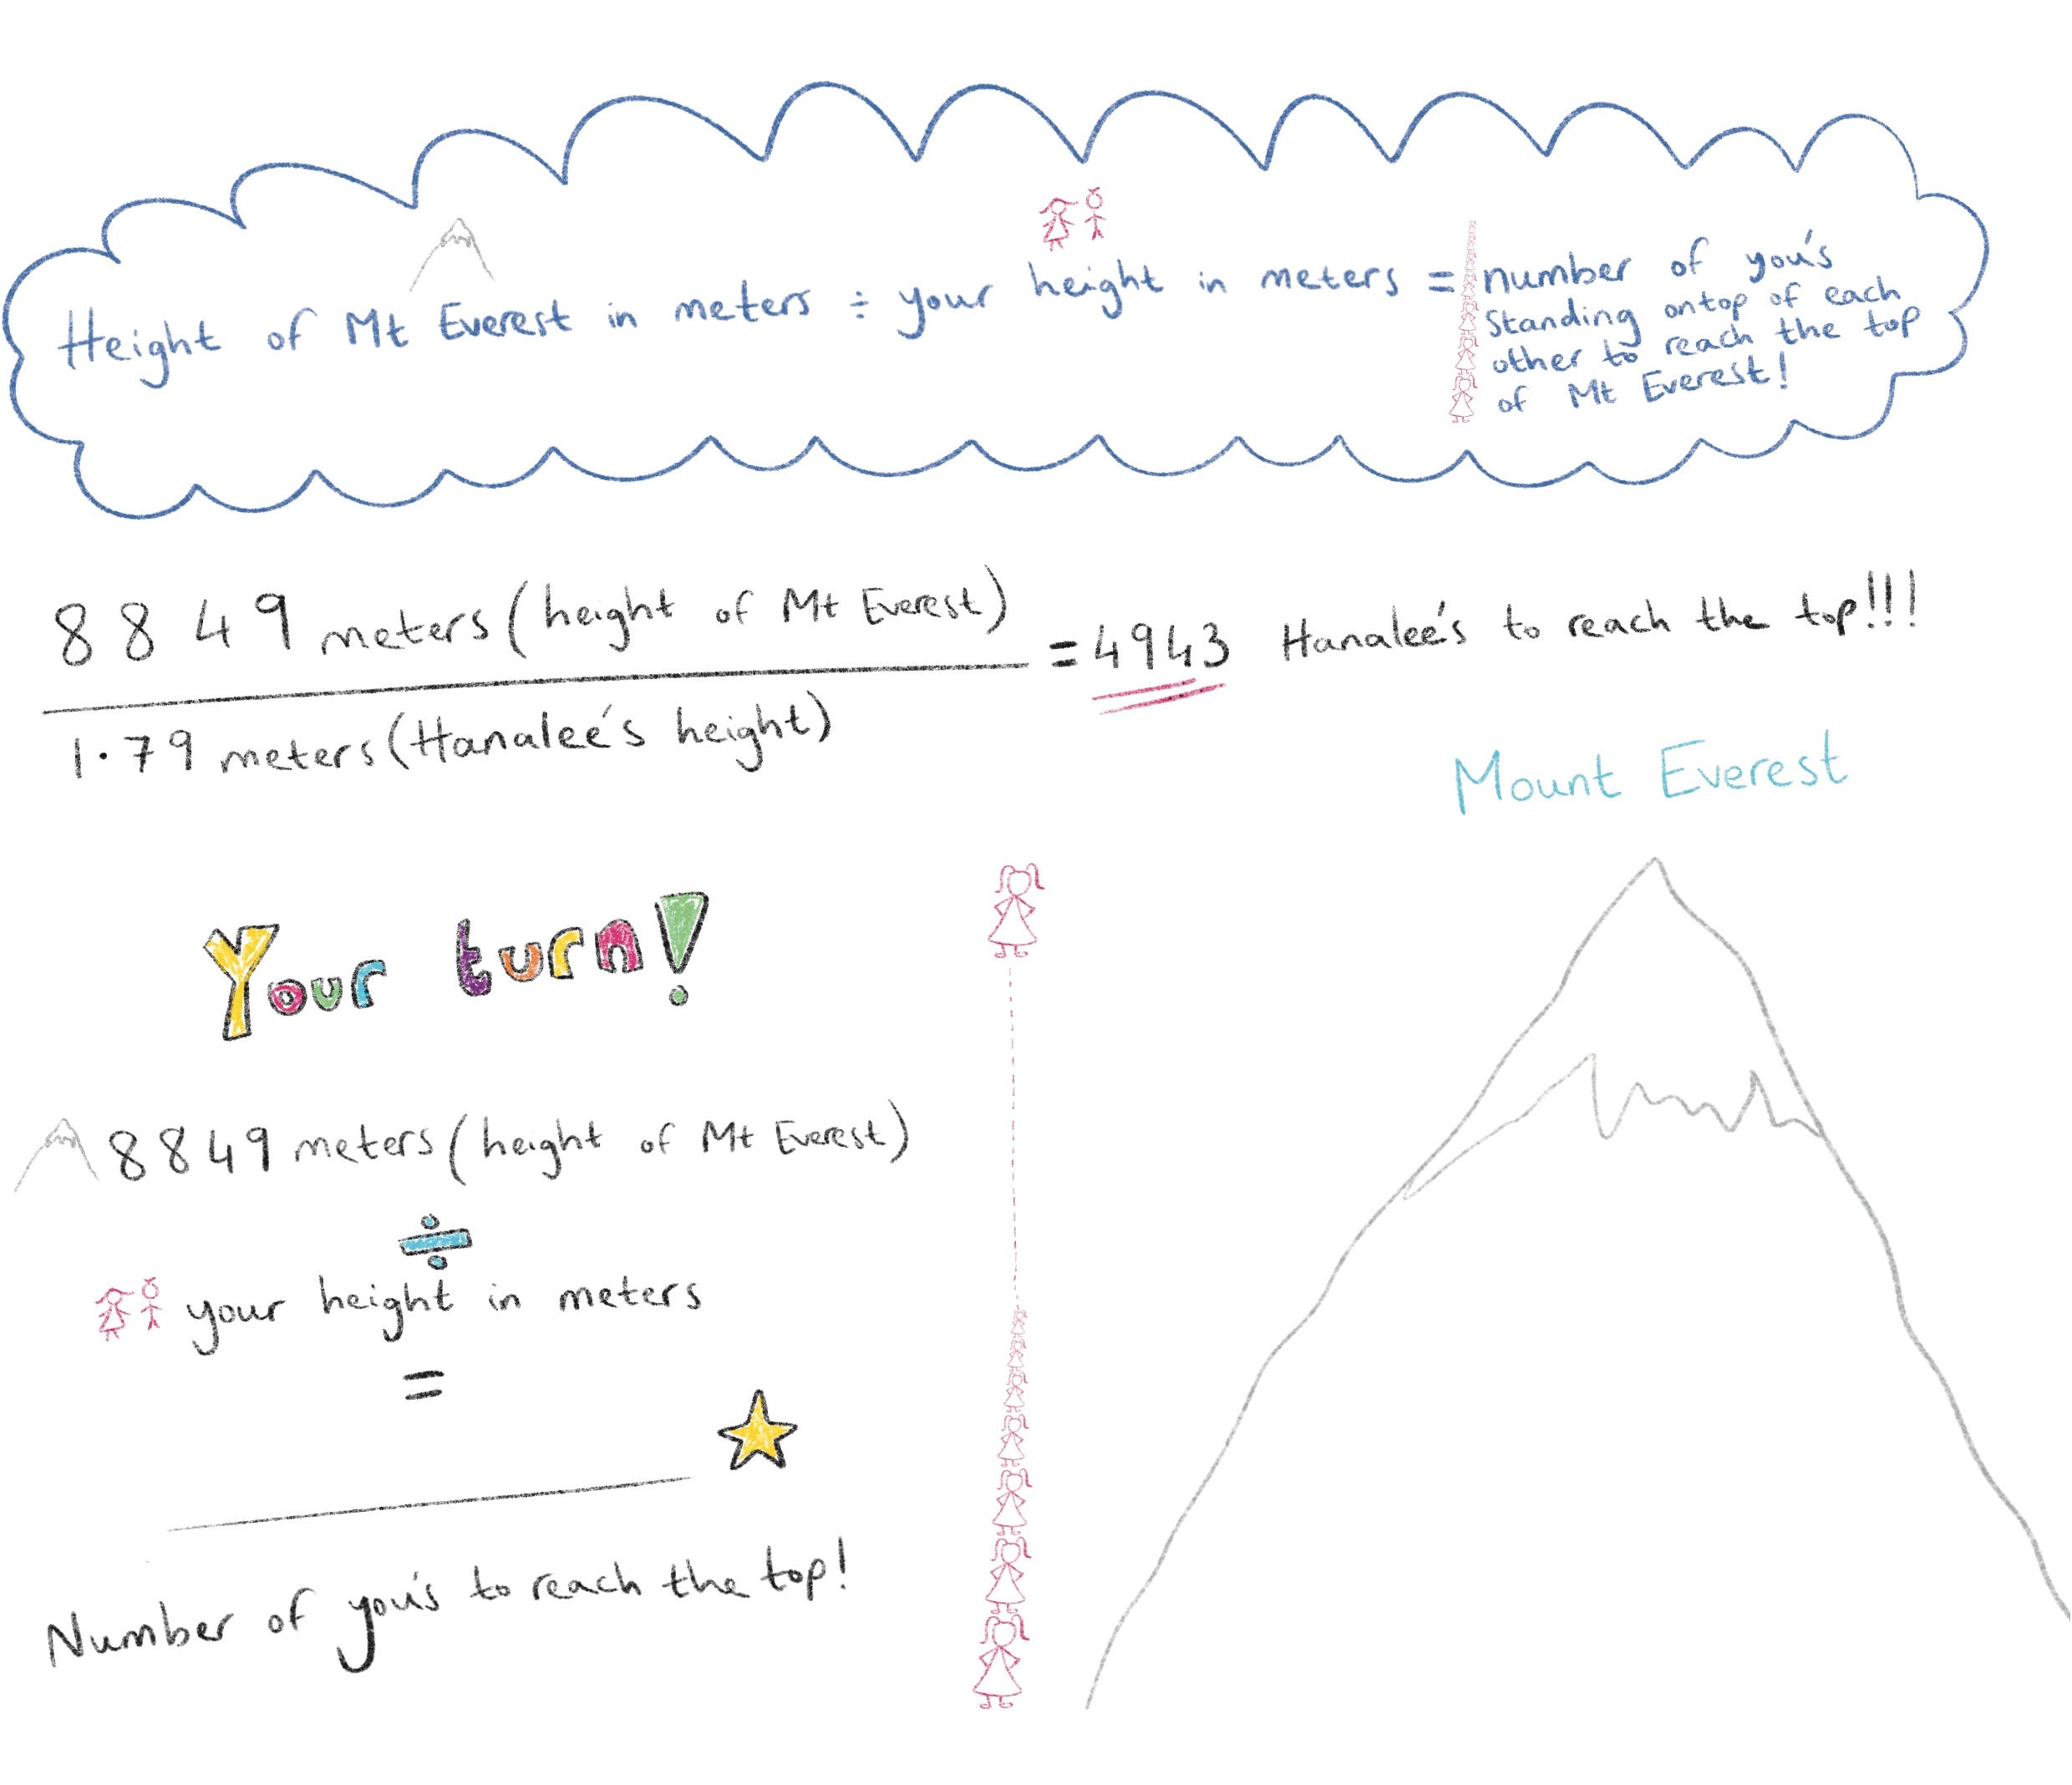 Height of Mt Everest in meters ÷ your height in meters = number of you's
standing ontop of each
other to reach the top
of Mt Everest!
8849 meters (height of Mt Everest)
= 4943 Hanalee's to reach the top!!!
1.79 meters (Hanalee's height)
Mount Everest
Your turn!
8849 meters (height of Mt Everest)
÷
your height in meters
=
Number of you's to reach the top!